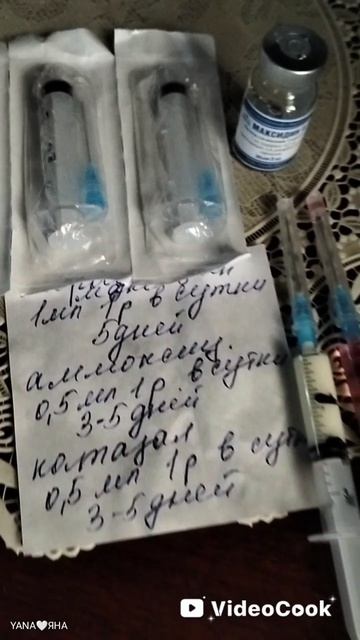 МАКСИДИН
1мл 1р в сутки
5дней
аммоксиц.
0,5мл 1р в сутки
3-5дней
катазал
0,5мл 1р в сут
3-5дней
VideoCook
YANA🤍ЯНА